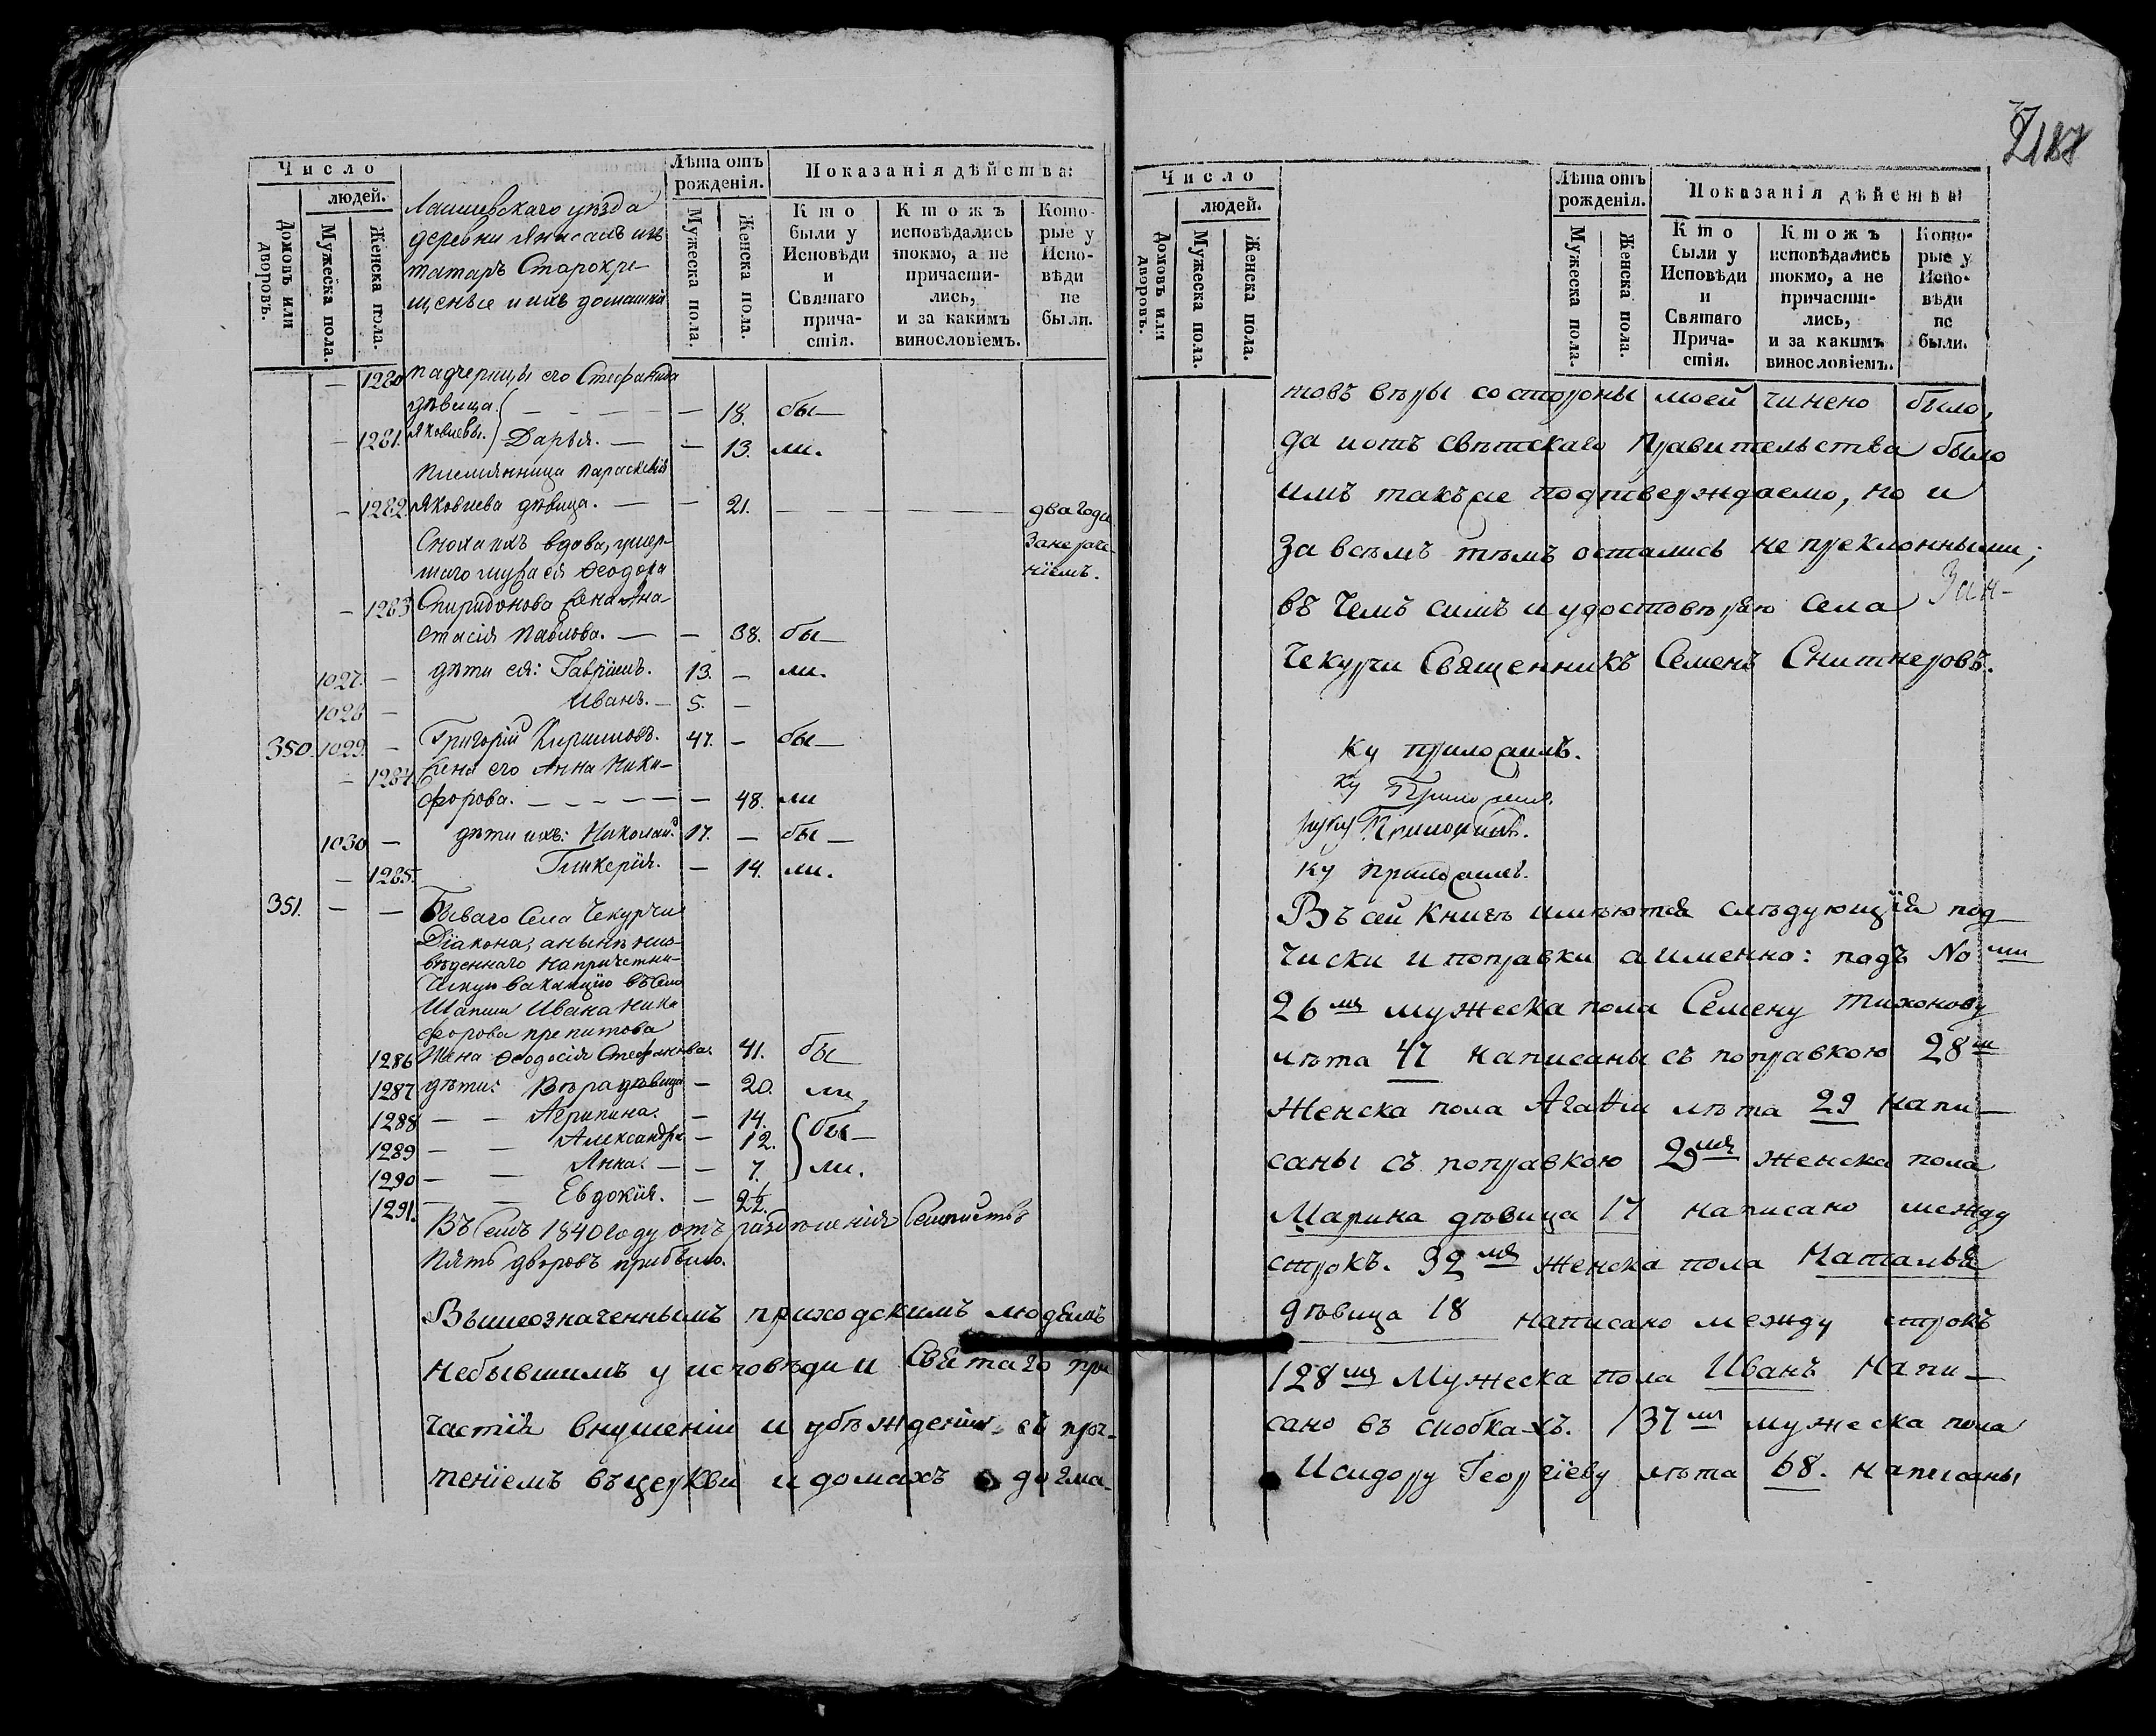 Число
людей.
Домовъ или дворовъ.
Мужеска пола.
Женска пола.
Лаишевскаго уѣзда
деревни Янасалъ изъ
татаръ Старокре-
щеные и ихъ домашнія
Лѣта отъ рожденія.
Мужеска пола.
Женска пола.
Показанія дѣйства:
Кто были у Исповѣди и Святаго прича-стія.
Ктожъ исповѣдались токмо, а не причасти-лись, и за какимъ винословіемъ.
Кото-рые у Испо-вѣди не были.
— 1280 падчерицы его Стефанида
дѣвица — 18. бы—
— 1281. Яковлевы. Дарья. — — 13. ли.
племянница Параскевія
— 1282 Яковлева дѣвица. — — 21. — — два года
Сноха ихъ вдова, умер- занераче-
шаго мужа ея Ѳеодора ніемъ.
— 1283 Спиридонова жена Ана-
стасія Павлова. — — 38. бы—
1027. — дѣти ея: Гавріилъ. 13. — ли.
1028 — Иванъ. — 5. —
350. 1029. — Григорій Кириловъ. 47. — бы—
— 1284. жена его Анна Ники-
форова. — — 48. ли
1030 — дѣти ихъ: Николай. 17. — бы—
— 1285. Гликерія. — 14. ли.
351. — — Бываго Села Чекурчи
Діакона, а нынѣ низ-
вѣденнаго на причетни-
ческую вакансію въ Село
Шапши Ивана Ники
форова препитова
1286 Жена Ѳеодосія Стефанова. 41. бы
1287 дѣти: Вѣра дѣвица — 20. ли,
1288 — — Агрипина. — 14. бы—
1289 — — Александра — 12.
1290 — — Анна. — — 7. ли.
1291. — — Евдокія. — 2½.
Въ семъ 1840 году отъ раздѣленія Семействъ
пять дворовъ прибыло.
Вышеозначеннымъ приходскимъ людемъ
небывшимъ у исповѣди и Святаго при
частія внушеніи и убѣжденія съ проч-
теніемъ въ церкви и домахъ догма-
188
Число
людей.
Домовъ или дворовъ.
Мужеска пола.
Женска пола.
Лѣта отъ рожденія.
Мужеска пола.
Женска пола.
Показанія дѣйства
Кто были у Исповѣди и Святаго Прича-стія.
Ктожъ исповѣдались токмо, а не причасти-лись, и за какимъ винословіемъ.
Кото-рые у Испо-вѣди не были.
товъ вѣры со стороны моей чинено было,
да и отъ свѣтскаго Правительства было
имъ такъже подтверждаемо, но и
за всѣмъ тѣмъ остались не преклонными;
въ чемъ симъ и удостовѣряю села Зан-
Чекурчи Священникъ Семенъ Снитнеровъ.
ку приложилъ.
ку Приложилъ.
руку Приложилъ.
ку приложилъ.
Въ сей книгѣ имѣются слѣдующія под-
чиски и поправки а именно: подъ No ми
26 мя мужеска пола Семену Тихонову
лѣта 47 написаны съ поправкою 28 м
Женска пола Агаѳіи лѣта 29 напи-
саны съ поправкою 29 мя женска пола
Марина дѣвица 17 написано между
строкъ. 32 мя женска пола Наталья
дѣвица 18 написано между строкъ
128 мя Мужеска пола Иванъ Напи-
сано въ скобкахъ. 137 мя мужеска пола
Исидору Георгіеву лѣта 68. написаны